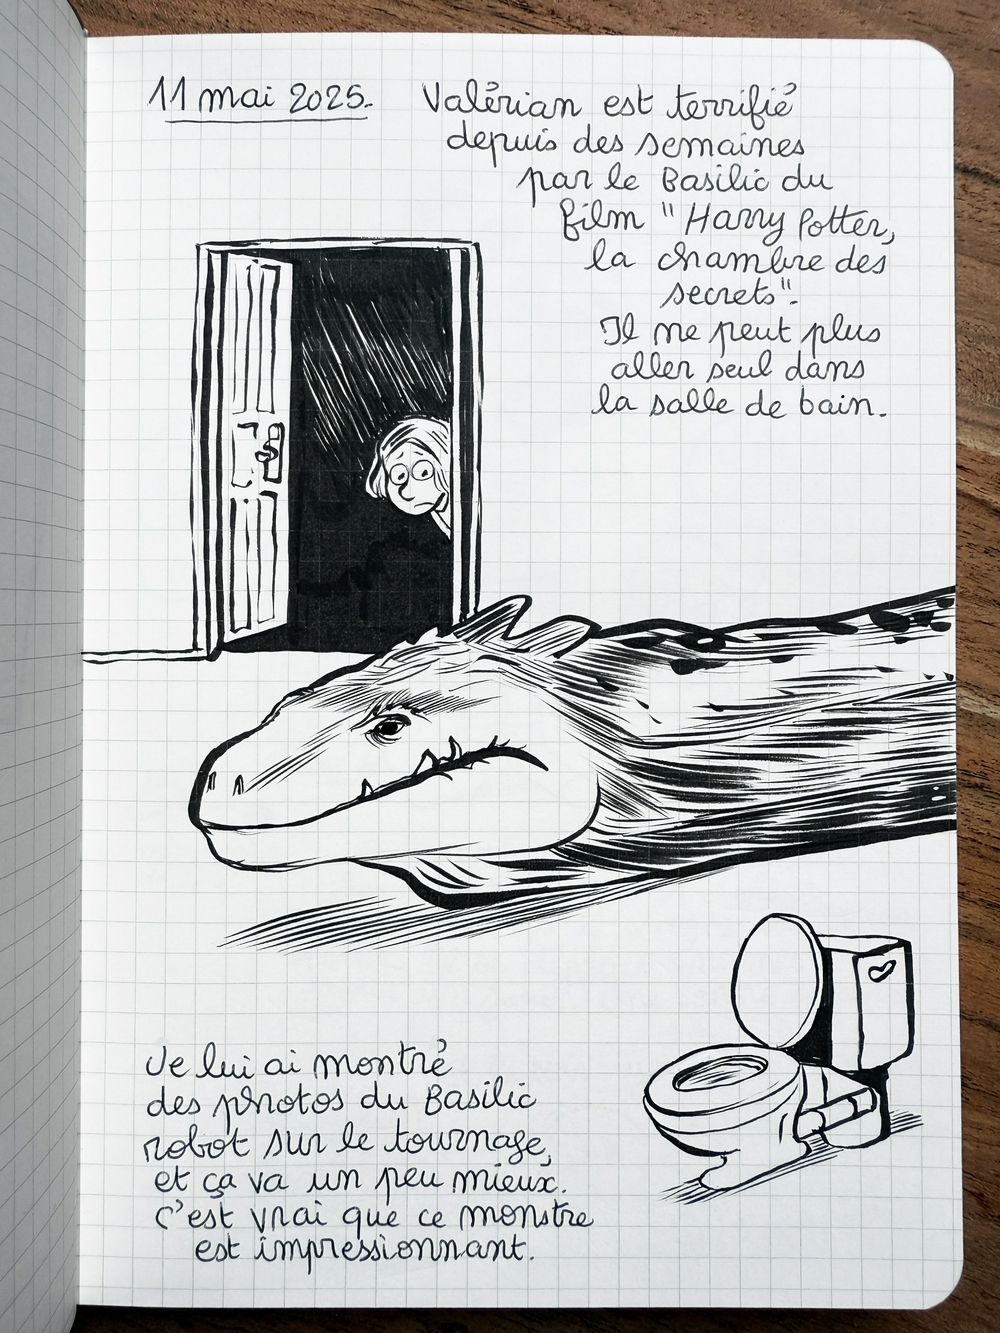 11 mai 2025.
Valérian est terrifié
depuis des semaines
par le Basilic du
film "Harry Potter,
la chambre des
secrets".
Il ne peut plus
aller seul dans
la salle de bain.
Je lui ai montré
des photos du Basilic
robot sur le tournage,
et ça va un peu mieux.
C'est vrai que ce monstre
est impressionnant.